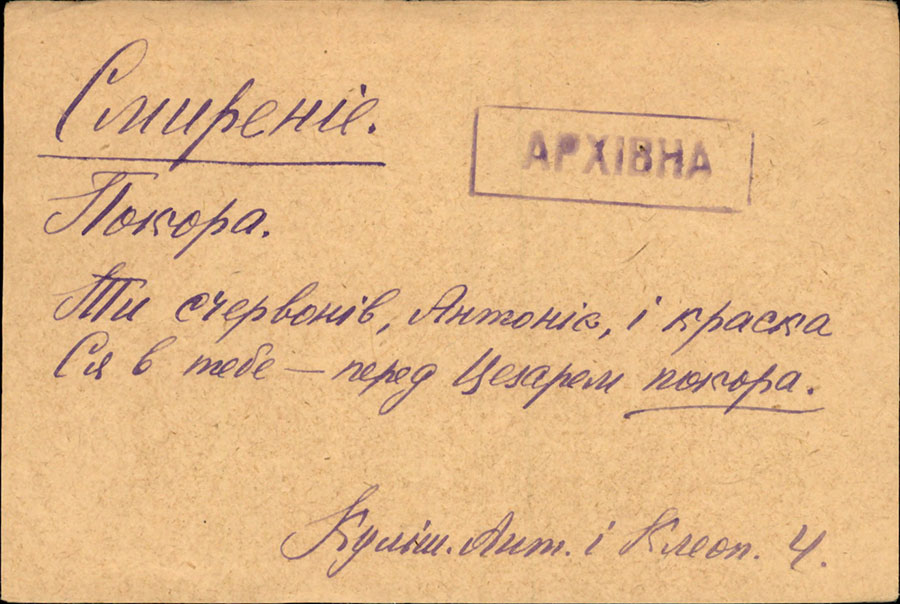 Смиреніе.
АРХІВНА
Покора.
Ти счервонів, Антоніє, і краска
Ся в тебе — перед Цезарем покора.
Куліш. Ант. і Клеоп. 4.